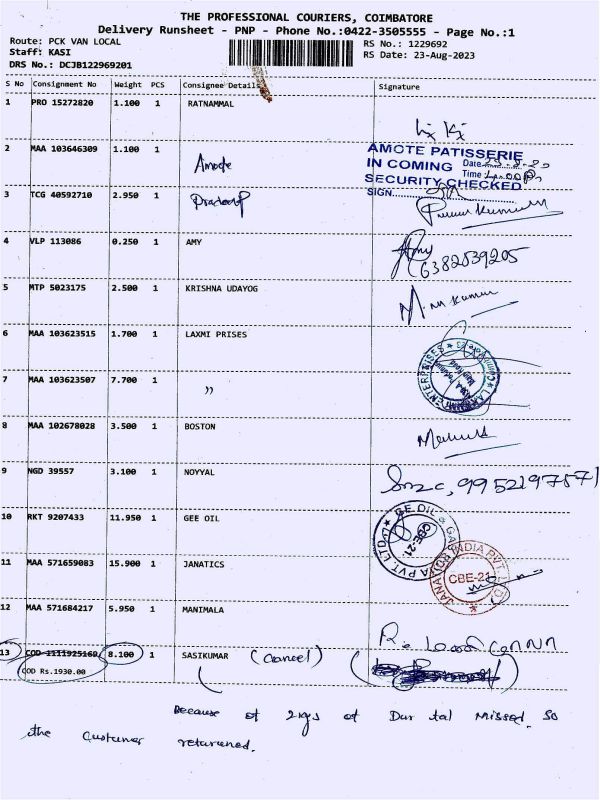 THE PROFESSIONAL COURIERS, COIMBATORE
Delivery Runsheet - PNP - Phone No.:0422-3505555 - Page No.:1
Route: PCK VAN LOCAL
Staff: KASI
DRS No.: DCJB122969201
RS No.: 1229692
RS Date: 23-Aug-2023
S No Consignment No Weight PCS Consignee Details Signature
1 PRO 15272820 1.100 1 RATNAMMAL
2 MAA 103646309 1.100 1 Amote
AMOTE PATISSERIE
IN COMING Date
Time 4.00P
SECURITY CHECKED
SIGN
3 TCG 40592710 2.950 1 Pradeep
4 VLP 113086 0.250 1 AMY Amy
6382839205
5 MTP 5023175 2.500 1 KRISHNA UDAYOG
6 MAA 103623515 1.700 1 LAXMI PRISES
7 MAA 103623507 7.700 1 ,,
8 MAA 102678028 3.500 1 BOSTON
9 NGD 39557 3.100 1 NOYYAL
10 RKT 9207433 11.950 1 GEE OIL
CBE-21.
11 MAA 571659083 15.900 1 JANATICS
JANATICS INDIA PVT. LTD.
CBE-21
12 MAA 571684217 5.950 1 MANIMALA
13 COD 1111925169 8.100 1 SASIKUMAR (Cancel)
COD Rs.1930.00
Because of 2kgs of Dur tal missed. So
the Customer returaned.